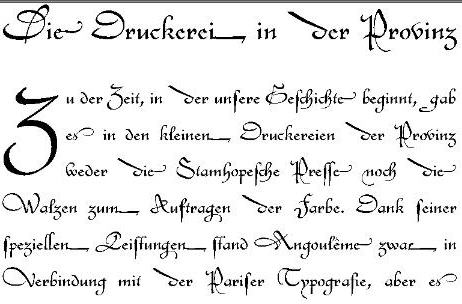 Die Druckerei in der Provinz
Zu der Zeit, in der unsere Geschichte beginnt, gab
es in den kleinen Druckereien der Provinz
weder die Stanhopesche Presse noch die
Walzen zum Auftragen der Farbe. Dank seiner
speziellen Leistungen stand Angoulême zwar in
Verbindung mit der Pariser Typografie, aber es